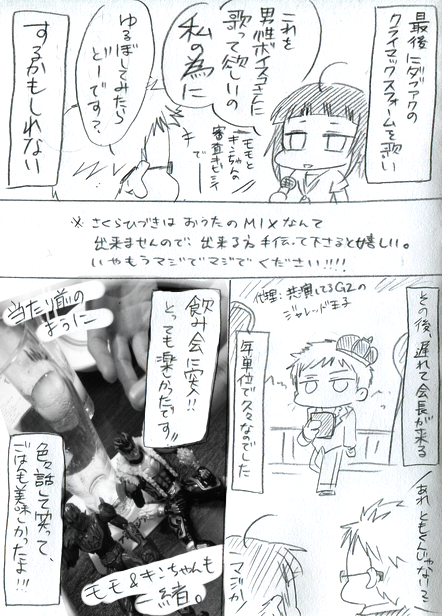 最後にダブアクの
クライマックスフォームを歌い
これを
男性ボイスコさんに
歌って欲しいの
私の為に
モモと
キンちゃんの
審査キビシイ
で
ゆるぼしてみたら
どーです?
するかもしれない
※ さくらひづきは おうたのMIXなんて
出来ませんので、出来る方手伝って下さると嬉しい。
いやもうマジでマジで ください!!!!
その後、遅れて会長が来る
代理:共演してるG2の
ジャレッド王子
年単位で久々なのでした
あれ ともくんじゃなーい?
マジか
飲み会に突入!!
とっても楽しかったです!!
当たり前の
おうに
色々話して笑って、
ごはんも美味しかったよ!!!
モモ&キンちゃんも
一緒。